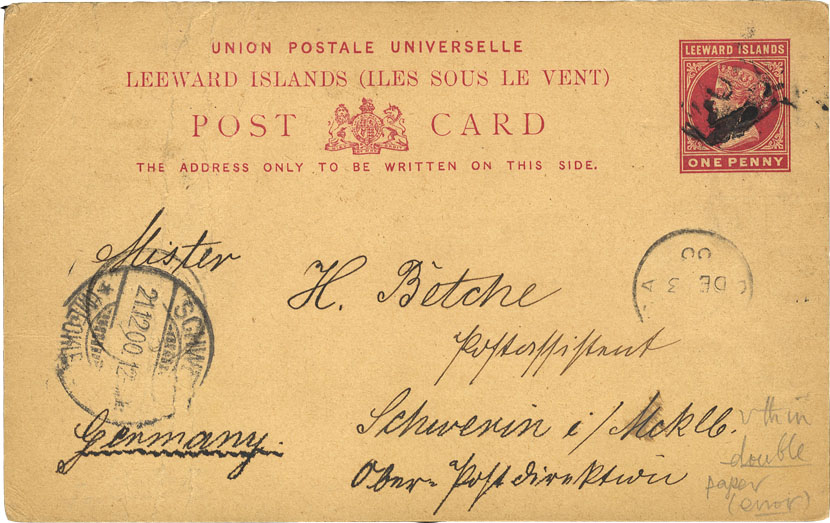 UNION POSTALE UNIVERSELLE
LEEWARD ISLANDS (ILES SOUS LE VENT)
POST CARD
THE ADDRESS ONLY TO BE WRITTEN ON THIS SIDE.
LEEWARD ISLANDS
ONE PENNY
Mister
H. Bötche
Postassistent
Schwerin i/Mcklb.
Ober-Postdirektion
Germany.
SCHWE
21.12.00.12
DE 3
00
A
v thin
double
paper
(error)